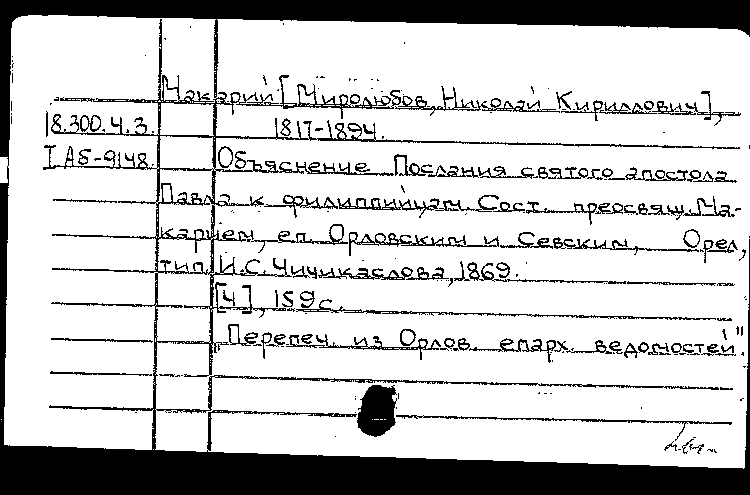 Макарий [Миролюбов, Николай Кириллович],
18.300.4.3. 1817-1894.
I A5-9148. Объяснение Послания святого апостола
Павла к филиппийцам. Сост. преосвящ. Ма-
карием, еп. Орловским и Севским, Орел,
тип. И.С. Чичикаслова, 1869.
[4], 159 с.
„Перепеч. из Орлов. епарх. ведомостей".